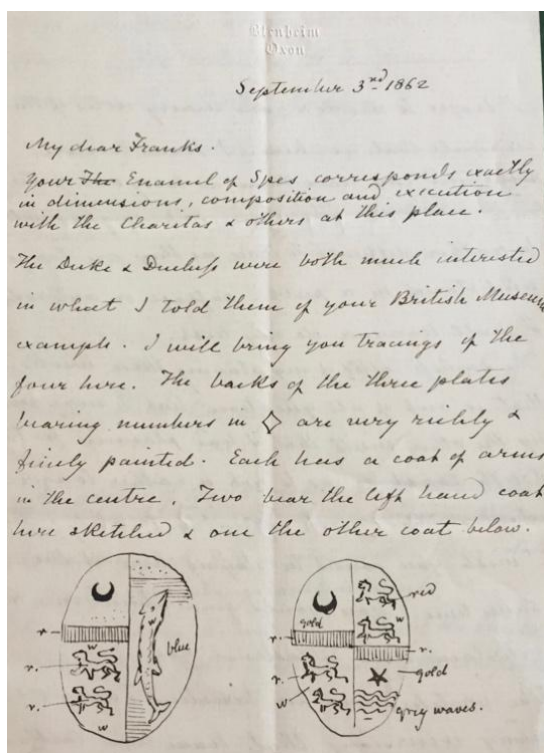 Blenheim
Oxon
September 3rd 1862
My dear Franks.
Your The Enamel of Spes corresponds exactly
in dimensions, composition and execution
with the Charitas & others at this place.
The Duke & Duchess were both much interested
in what I told them of your British Museum
example. I will bring you tracings of the
four here. The backs of the three plates
bearing numbers in ◇ are very richly &
finely painted. Each has a coat of arms
in the centre. Two bear the left hand coat
here sketched & one the other coat below.
r. w r. r. w w blue
gold r. r. w w red r. gold grey waves.